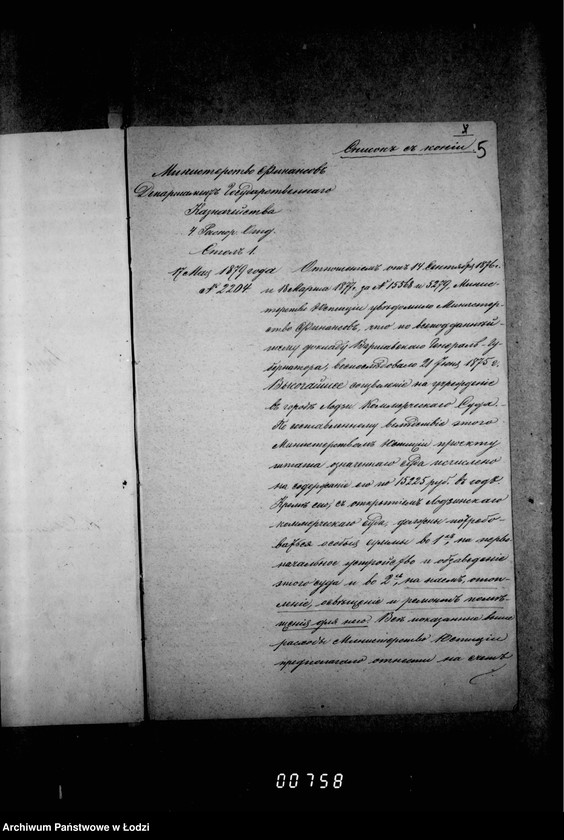 Списокъ съ копіи. 5
Министерство Финансовъ
Департаментъ Государственнаго
Казначейства
Столъ 1.
17 Мая 1879 года
№ 2204
Отношеніемъ отъ 14 Сентября 1876 г.
и 18 Марта 1877 г. за № 15368 и 5279, Мини-
стерство Юстиціи увѣдомило Министер-
ство Финансовъ, что по всеподданнѣй-
шему докладу Варшавскаго Генералъ-Гу-
бернатора, воспослѣдовало 21 Іюня 1875 г.
Высочайшее соизволеніе на учрежденіе
въ городѣ Лодзи Коммерческаго Суда.
По составленному вслѣдствіе этого
Министерствомъ Юстиціи проекту
штата означеннаго суда исчислено
на содержаніе его по 15225 руб. въ годъ.
Кромѣ сего, съ открытіемъ Лодзинскаго
коммерческаго суда, должны потребо-
ваться особыя суммы во 1хъ, на перво-
начальное устройство и обзаведеніе
этого суда и во 2хъ, на наемъ, отоп-
леніе, освѣщеніе и ремонтъ помѣ-
щенія для него. Всѣ показанные выше
расходы Министерство Юстиціи
предполагало отнести на счетъ
00758
Archiwum Państwowe w Łodzi